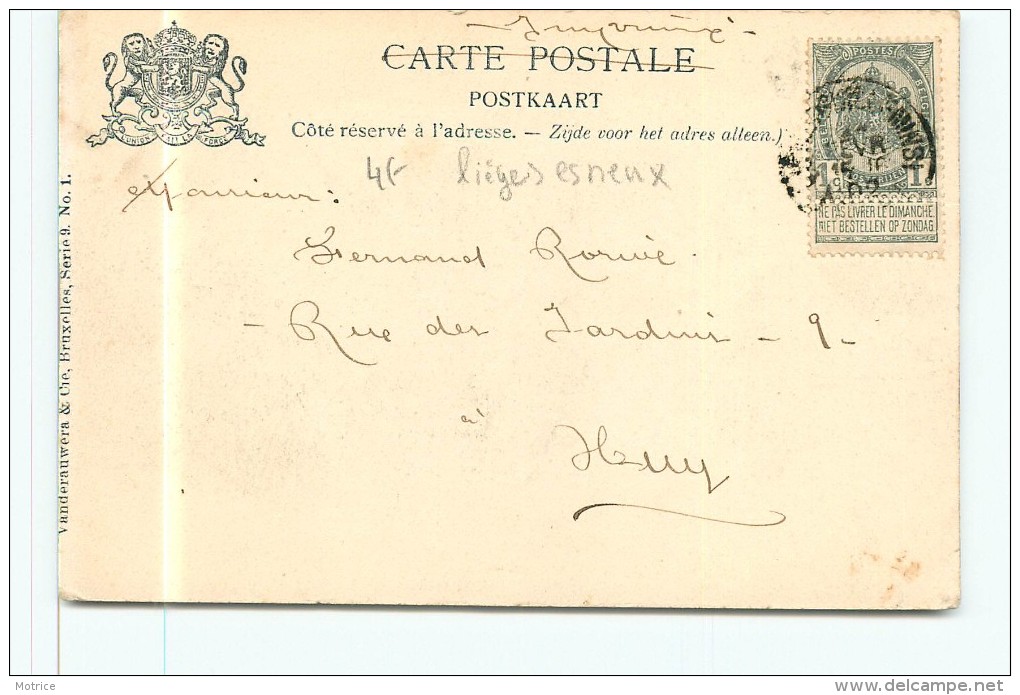 Imprimé
CARTE POSTALE
POSTKAART
Côté réservé à l'adresse. — Zijde voor het adres alleen.)
L'UNION FAIT LA FORCE
POSTES
1 1
NE PAS LIVRER LE DIMANCHE
NIET BESTELLEN OP ZONDAG
4F liéges esneux
Monsieur:
Fernand Rorive.
- Rue des Jardins - 9 -
à
Huy
Vanderauwera & Cie, Bruxelles, Serie 9. No. 1.
Motrice
www.delcampe.net